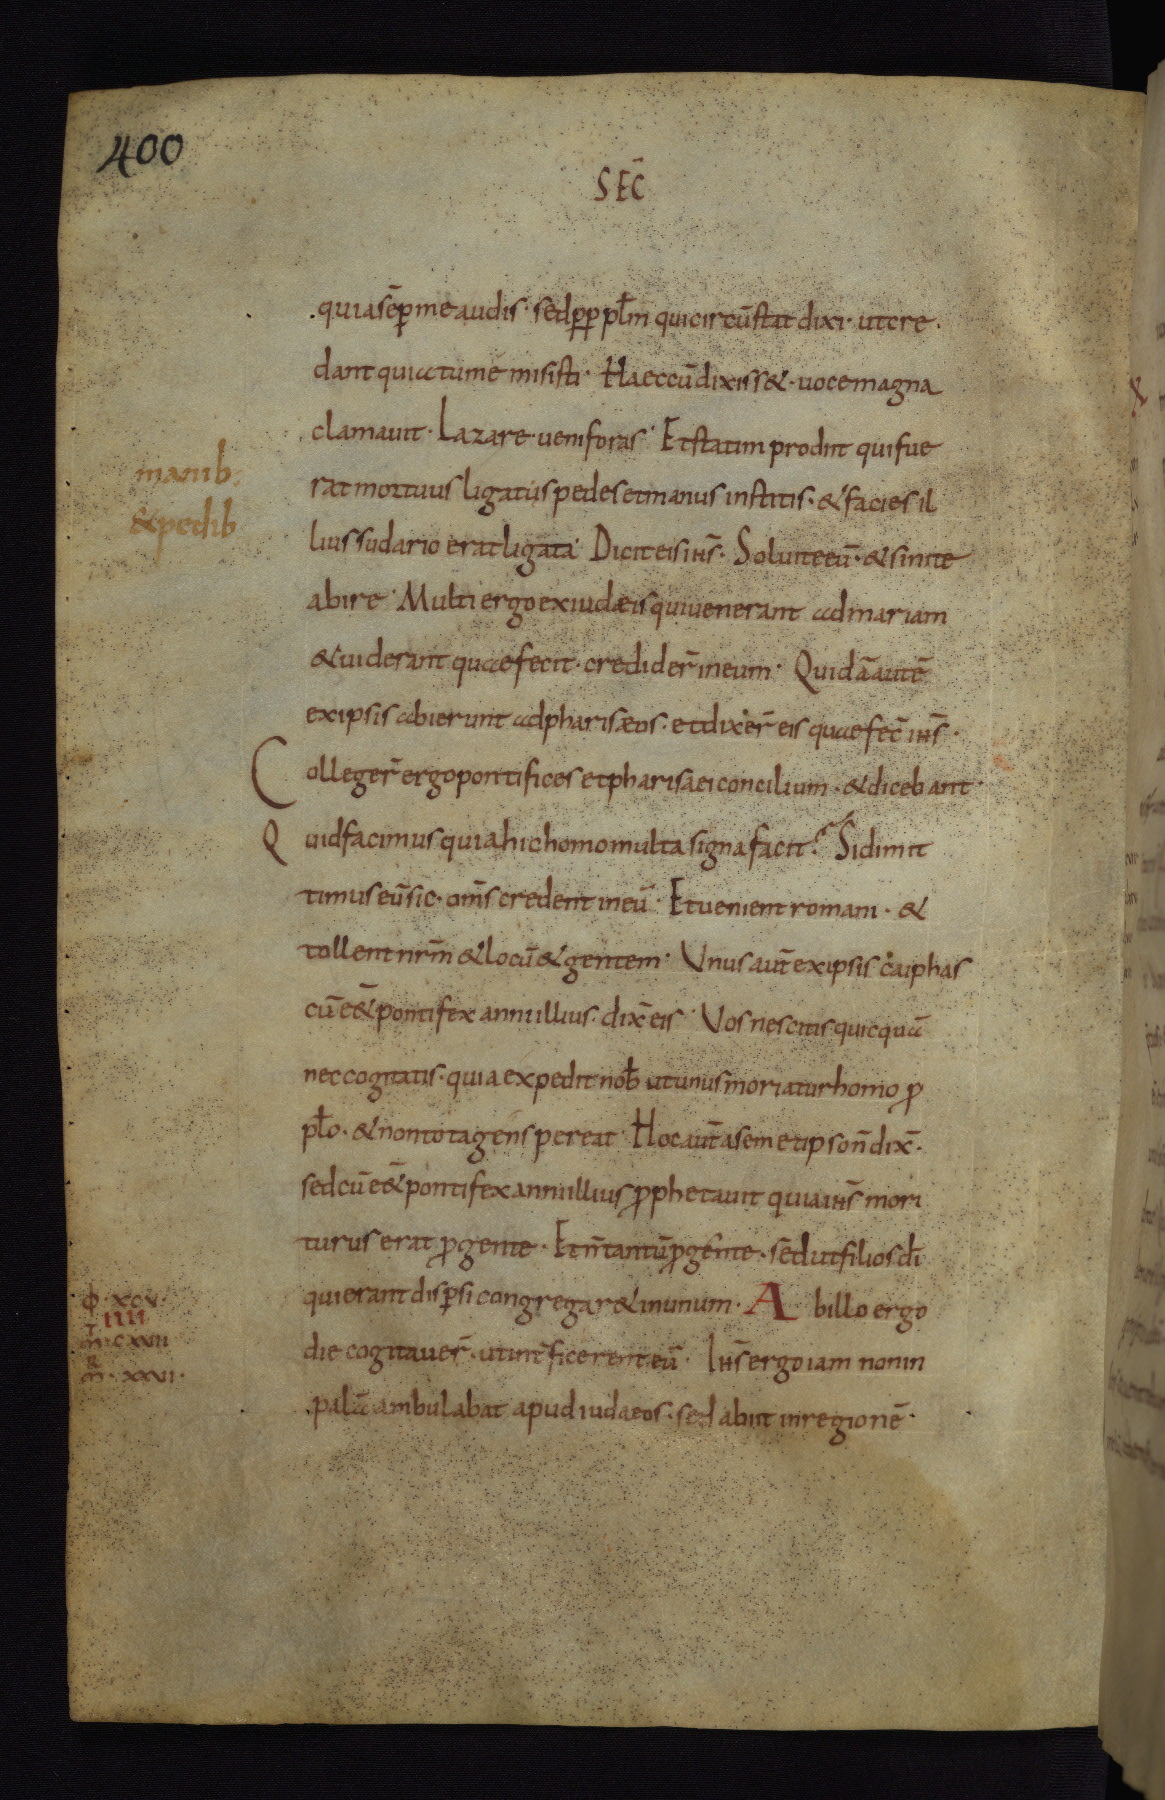 400
SEC̄
quia sēp me audis · sed pp pƚm qui circūstat dixi · ut cre
dant quia tu me misisti · Haec cū dixiss& · uoce magna
clamauit · Lazare ueni foras · Et statim prodiit qui fue
rat mortuus ligatus pedes et manus institis · & facies il
manib;
& pedib
lius sudario erat ligata · Dicit eis ih̅s · Soluite eū · & sinite
abire · Multi ergo ex iudæis qui uenerant ad mariam
& uiderant quae fecit · credider̄ in eum · Quidā autē
ex ipsis abierunt ad pharisæos · et dixer̄ eis quae fec̄ ih̅s ·
Colleger̄ ergo pontifices et pharisaei concilium · & dicebant
Quid facimus quia hic homo multa signa facit · Si dimit
timus eū sic · om̄s credent in eū · Et uenient romani · &
tollent nr̄m & locū & gentem · Unus aut̄ ex ipsis caiphas
cū ēē& pontifex anni illius · dix̄ eis · Vos nescitis quicquā
nec cogitatis · quia expedit nob̄ ut unus moriatur homo ꝓ
pƚo · & non tota gens pereat · Hoc aut̄ a semetipso n̄ dix̄ ·
sed cū ēē& pontifex anni illius ꝓphetauit quia ih̅s mori
turus erat ꝓ gente · Et n̄ tantū ꝓ gente · sed ut filios dī
qui erant dispsi congregar& in unum · Ab illo ergo
die cogitauer̄ · ut int̄ficerent eū · Ih̅s ergo iam non in
palā ambulabat apud iudaeos · sed abiit in regionē ·
· XCV
IIII
m · CXXII
R
m · XXVI ·